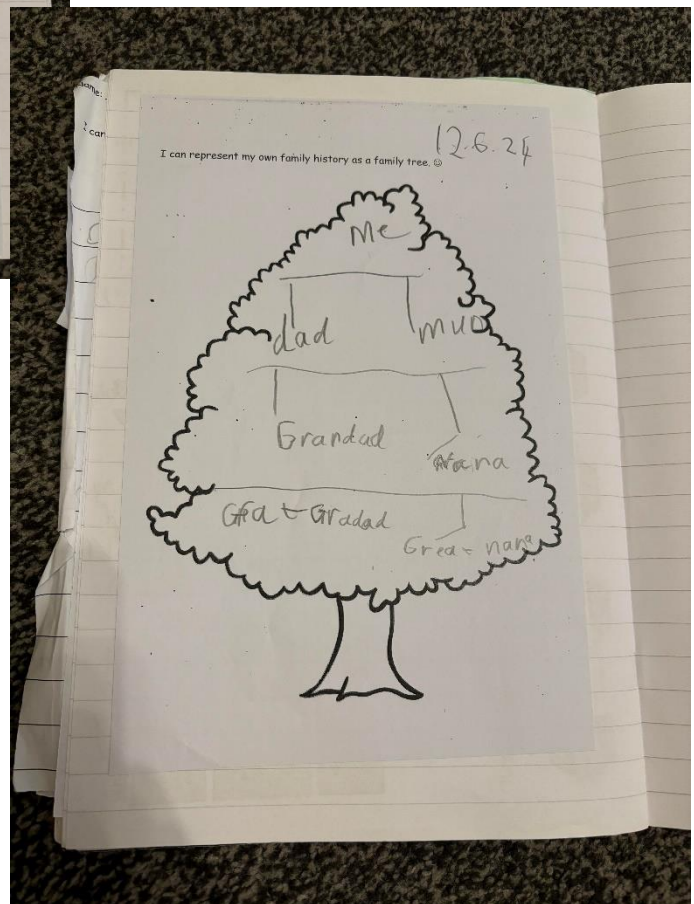 ame:
I can
12.6.24
I can represent my own family history as a family tree. ☺
Me
dad mum
Grandad
Nana
Grea-t Gradad
Grea-t nana